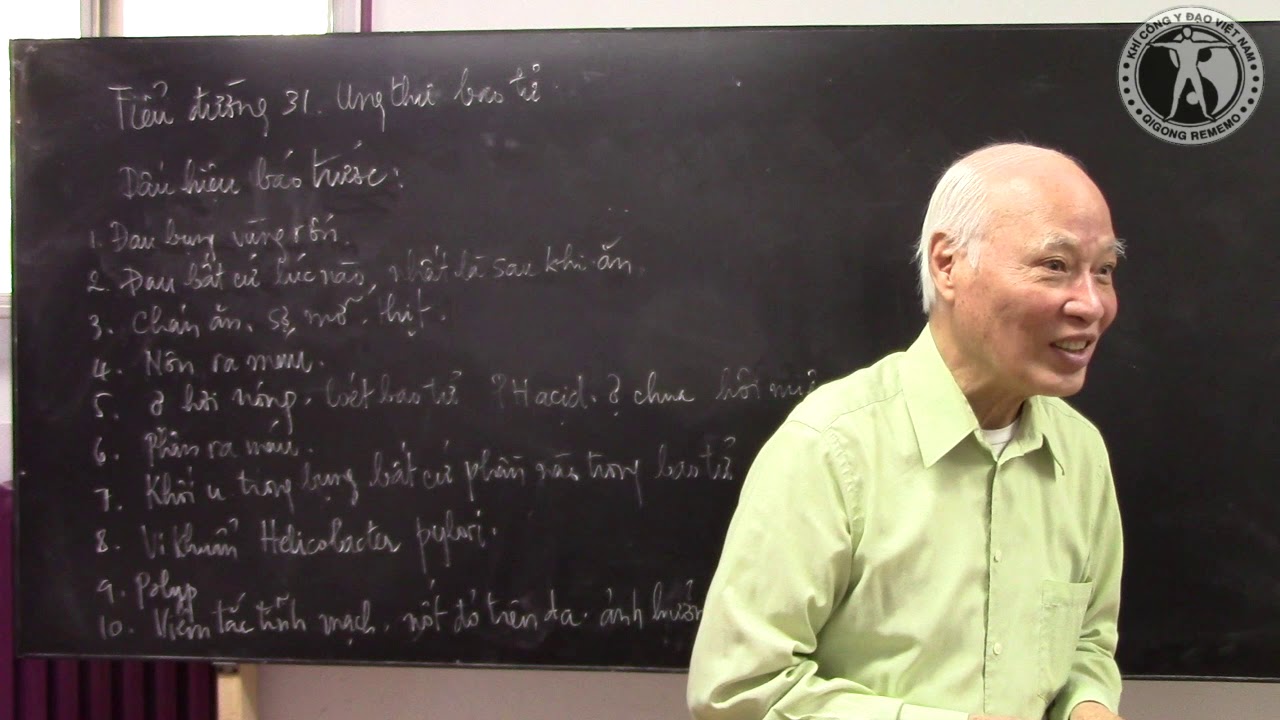 Tiểu đường 31. Ung thư bao tử
Dấu hiệu báo trước:
1. Đau bụng vùng rốn.
2. Đau bất cứ lúc nào, nhất là sau khi ăn.
3. Chán ăn. sợ mỡ. thịt.
4. Nôn ra máu.
5. Ợ hơi nóng. loét bao tử ?H acid. Ợ chua hôi
6. Phân ra máu.
7. Khối u trong bụng bất cứ phần nào trong bao tử
8. Vi khuẩn Helicobacter pylori.
9. Polyp
10. Viêm tắc tĩnh mạch. nốt đỏ trên da. ảnh hưởn
KHÍ CÔNG Y ĐẠO VIỆT NAM
QIGONG REMEMO